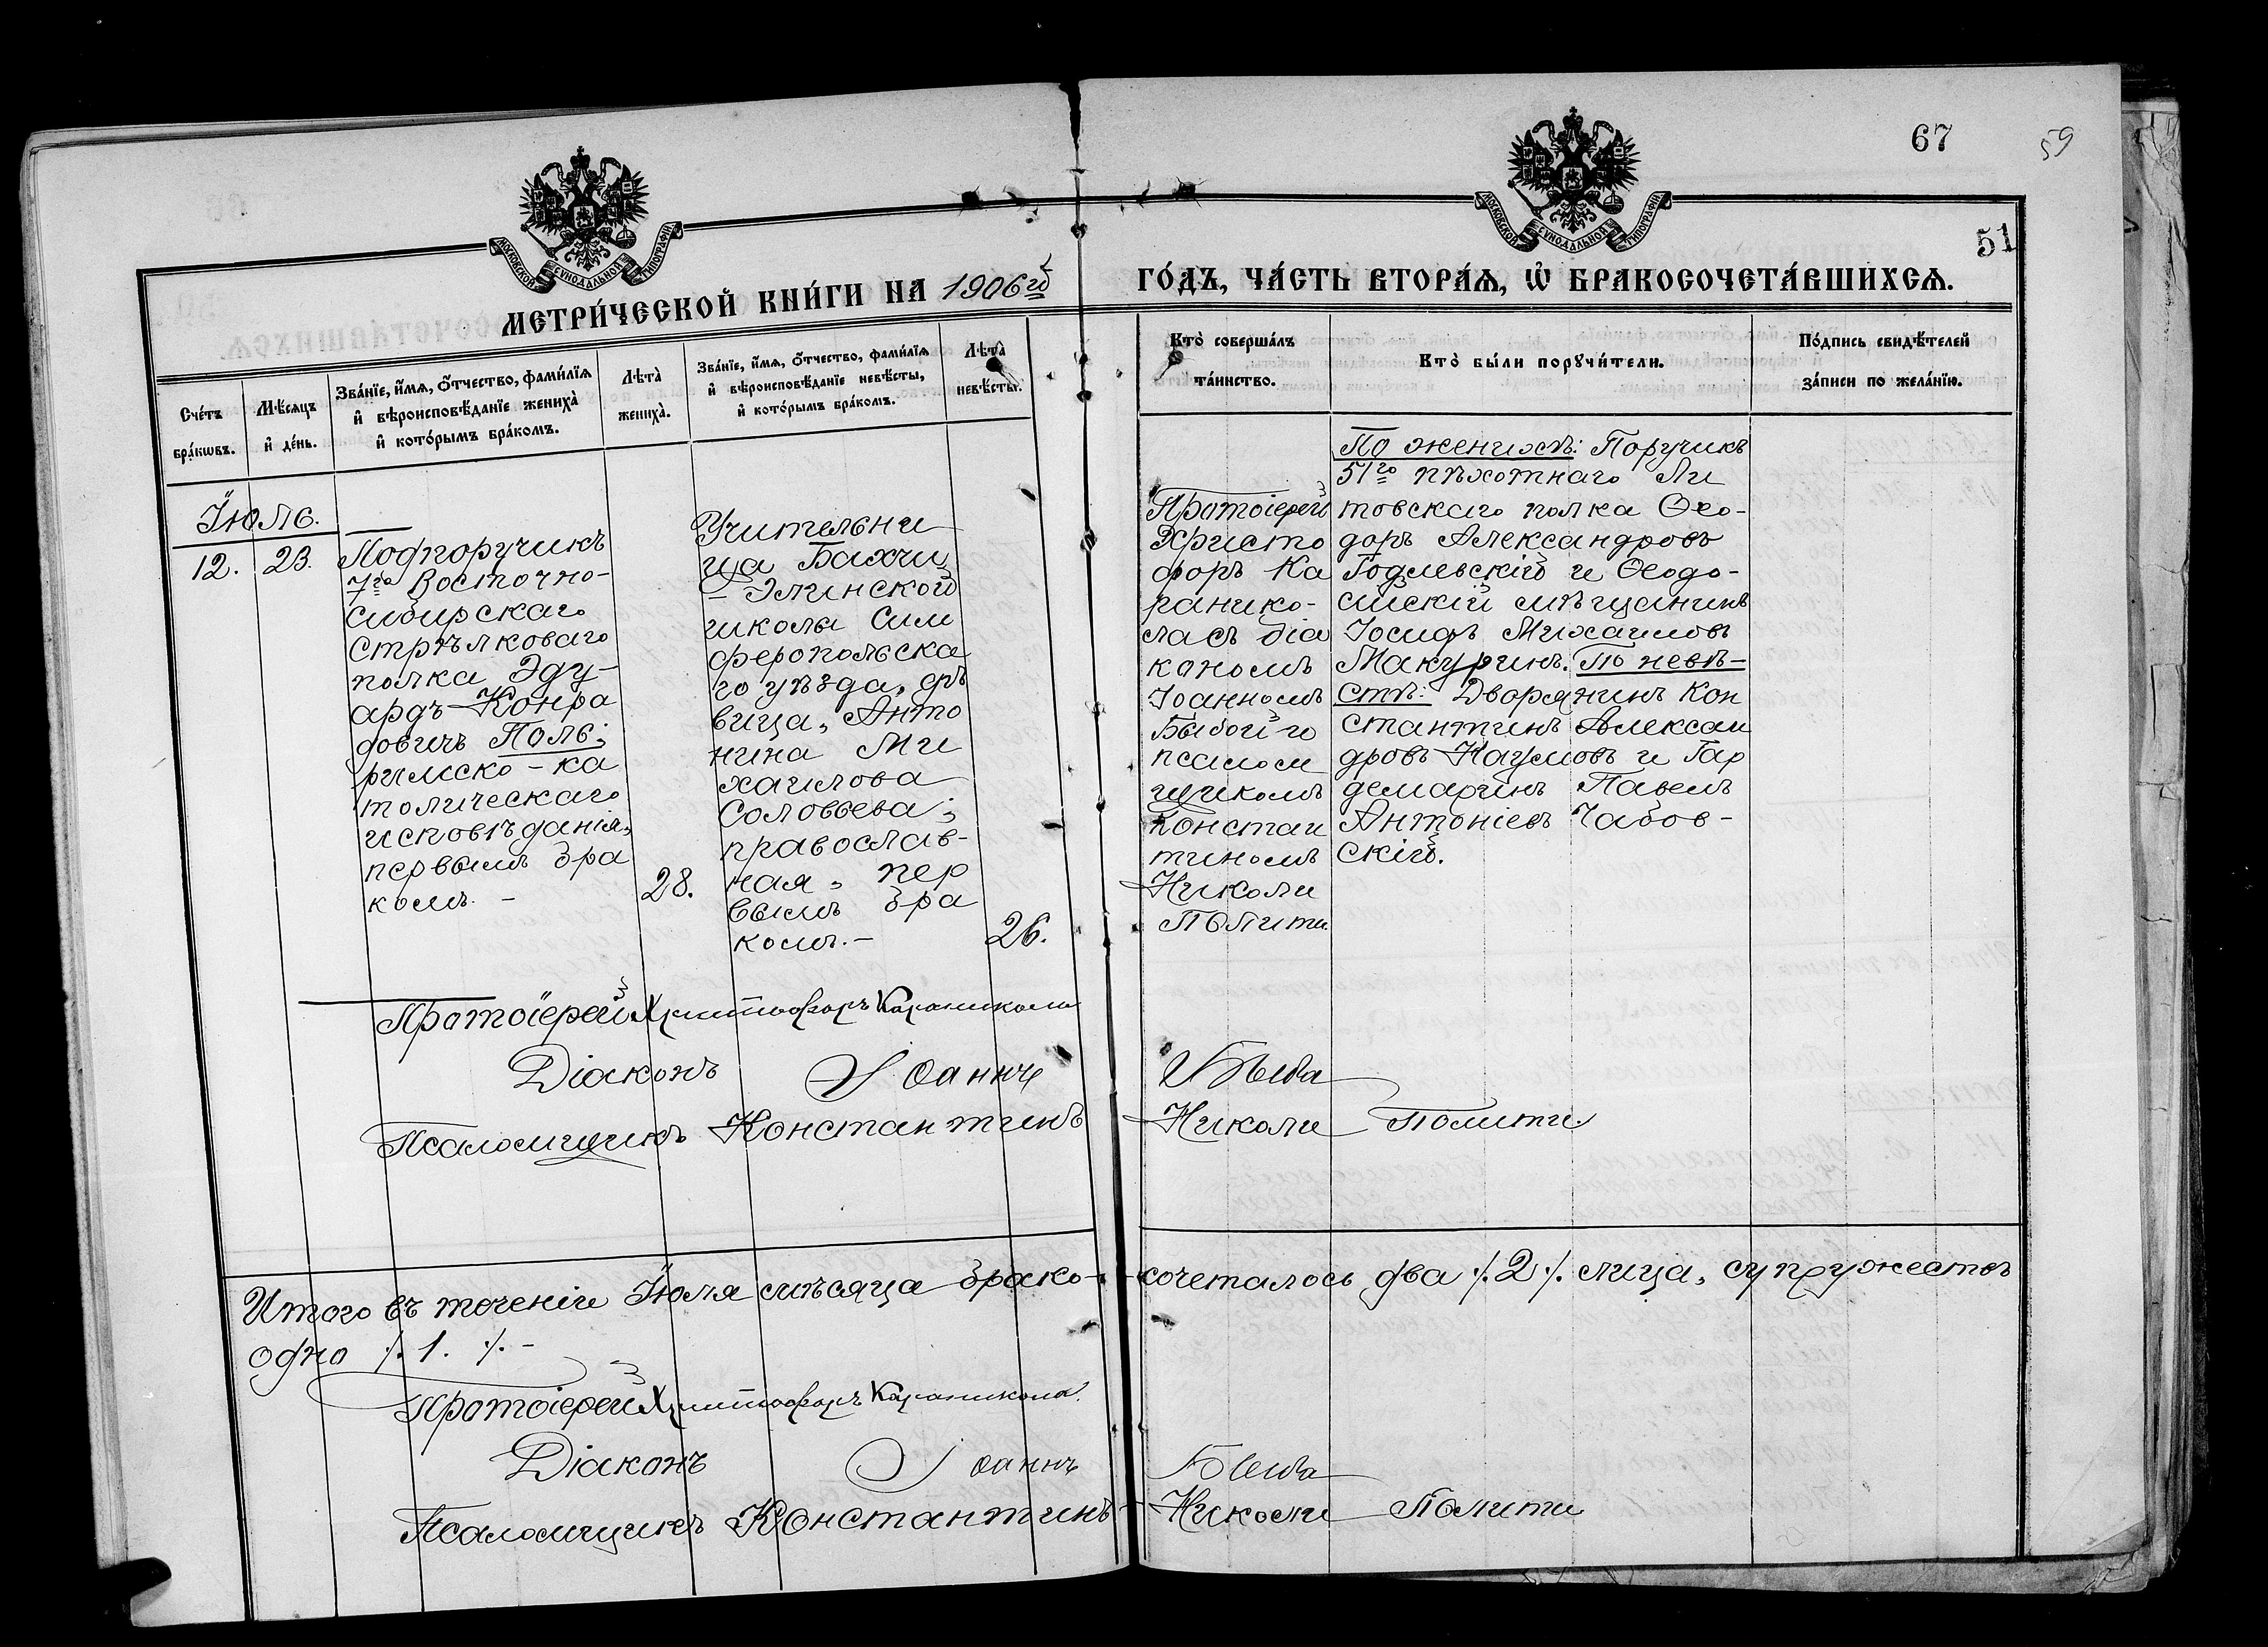 67
59
51
МОСКОВСКОЙ СѴНОДАЛЬНОЙ ТИПОГРАФІИ
МОСКОВСКОЙ СѴНОДАЛЬНОЙ ТИПОГРАФІИ
МЕТРИ́ЧЕСКОЙ КНИ́ГИ НА 1906 го
ГО́ДЪ, ЧА́СТЬ ВТОРА́Ѧ, Ѡ҆ БРАКОСОЧЕТА́ВШИХСѦ.
Сче́тъ
бра́кѡвъ.
Мѣ́сѧцъ
и҆ де́нь.
Зва́нїе, и҆́мѧ, ѻ҆́тчество, фами́лїѧ
и҆ вѣроисповѣ́данїе жениха̀
и҆ кото́рымъ бра́комъ.
Лѣта̀
жениха̀.
Зва́нїе, и҆́мѧ, ѻ҆́тчество, фами́лїѧ
и҆ вѣроисповѣ́данїе невѣ́сты,
и҆ кото́рымъ бра́комъ.
Лѣта̀
невѣ́сты.
Кто̀ соверша́лъ
та́инство.
Кто̀ бы́ли порꙋчи́тели.
По́дпись свидѣ́телей
за́писи по жела́нїю.
Іюль.
12.
23.
Подпоручикъ
7го Восточно-
Сибирскаго
Стрѣлковаго
полка Эду-
ардъ Конра
довичъ Поль;
римско-ка
толическаго
исповѣданія,
первымъ бра
комъ. -
28.
Учительни
ца Бахчи
- Элинской
школы Сим
феропольска
го уѣзда, дѣ
вица, Анто
нина Ми
хаилова
Соловьева;
православ-
ная, пер
вымъ бра
комъ. -
26.
Протоіерей
Христо
форъ Ка
ранико-
ласъ діа
кономъ
Іоанномъ
псалом
щикомъ
Констан
тиномъ
Николи
Полити
По женихѣ: Поручикъ
51го пѣхотнаго Ли
товскаго полка Ѳео-
доръ Александровъ
Годлевскій и Ѳеодо-
сійскій мѣщанинъ
Іосифъ Михаиловъ
Макуринъ. По невѣ-
стѣ: Дворянинъ Кон
стантинъ Алексан
дровъ Наумовъ и Гар
демаринъ Павелъ
Антоніевъ Чабов-
скій.
Протоіерей Христофоръ Караникола
Діаконъ Іоаннъ Быба
Псаломщикъ Константинъ Николи Полити.
Итого въ теченіи Іюля мѣсяца брако-сочеталось два ./. 2 ./. лица, супружествъ
одно ./. 1. ./. -
Протоіерей Христофоръ Караникола.
Діаконъ Іоаннъ Быба
Псаломщикъ Константинъ Николи Полити